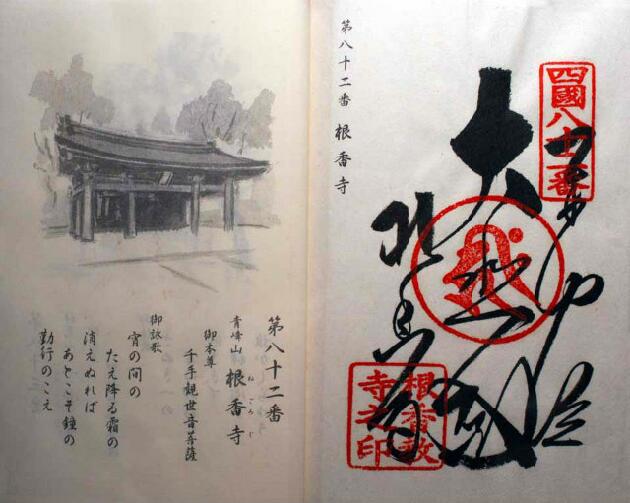 四國八十二番
根香教
寺之印
第八十二番 根香寺
第八十二番
青峰山 根香寺
ねごろじ
御本尊
千手観世音菩薩
御詠歌
宵の間の
たえ降る霜の
消えぬれば
あとこそ鐘の
勤行のこえ